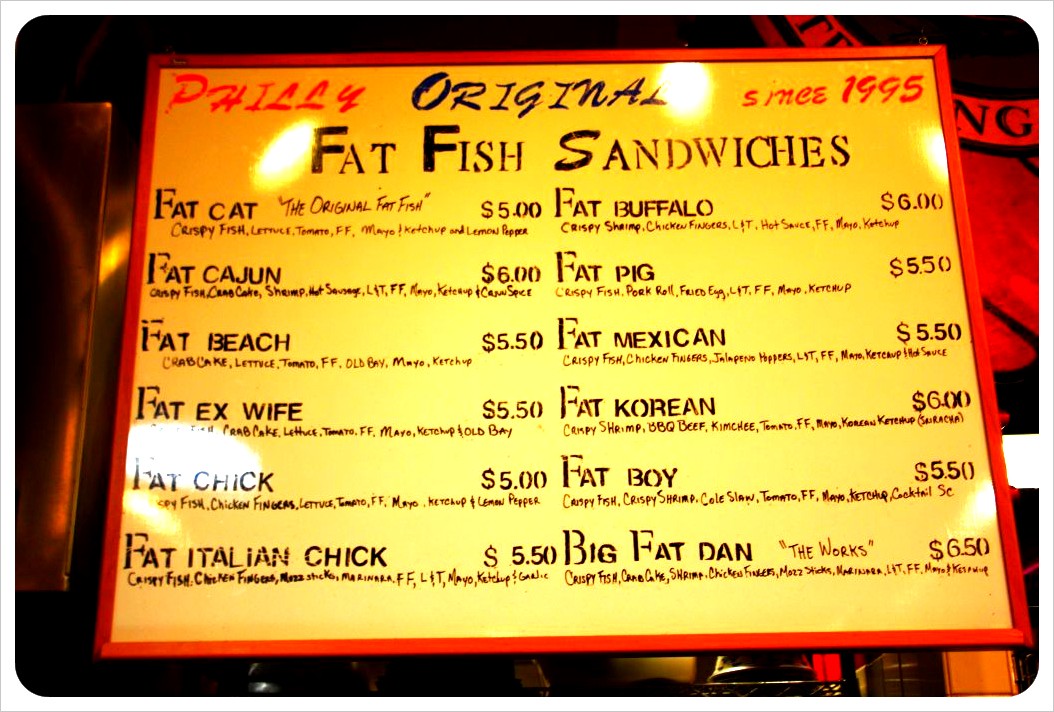 PHILLY ORIGINAL SINCE 1995
FAT FISH SANDWICHES
FAT CAT "THE ORIGINAL FAT FISH" $5.00
CRISPY FISH, LETTUCE, TOMATO, FF, MAYO & KETCHUP AND LEMON PEPPER
FAT CAJUN $6.00
CRISPY FISH, CRAB CAKE, SHRIMP, HOT SAUSAGE, L&T, FF, MAYO, KETCHUP & CAJUN SPICE
FAT BEACH $5.50
CRAB CAKE, LETTUCE, TOMATO, FF, OLD BAY, MAYO, KETCHUP
FAT EX WIFE $5.50
FISH, CRAB CAKE, LETTUCE, TOMATO, FF, MAYO, KETCHUP & OLD BAY
FAT CHICK $5.00
CRISPY FISH, CHICKEN FINGERS, LETTUCE, TOMATO, FF, MAYO, KETCHUP & LEMON PEPPER
FAT ITALIAN CHICK $5.50
CRISPY FISH, CHICKEN FINGERS, MOZZ STICKS, MARINARA, FF, L&T, MAYO, KETCHUP & GARLIC
FAT BUFFALO $6.00
CRISPY SHRIMP, CHICKEN FINGERS, L&T, HOT SAUCE, FF, MAYO, KETCHUP
FAT PIG $5.50
CRISPY FISH, PORK ROLL, FRIED EGG, L&T, FF, MAYO, KETCHUP
FAT MEXICAN $5.50
CRISPY FISH, CHICKEN FINGERS, JALAPENO POPPERS, L&T, FF, MAYO, KETCHUP & HOT SAUCE
FAT KOREAN $6.00
CRISPY SHRIMP, BBQ BEEF, KIMCHEE, TOMATO, FF, MAYO, KOREAN KETCHUP (SRIRACHA)
FAT BOY $5.50
CRISPY FISH, CRISPY SHRIMP, COLE SLAW, TOMATO, FF, MAYO, KETCHUP, COCKTAIL SC
BIG FAT DAN "THE WORKS" $6.50
CRISPY FISH, CRAB CAKE, SHRIMP, CHICKEN FINGERS, MOZZ STICKS, MARINARA, L&T, FF, MAYO & KETCHUP
NG